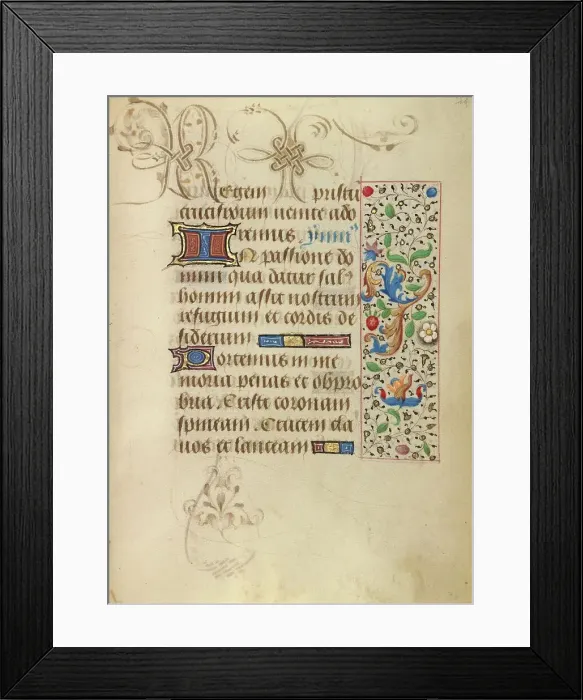 Regem
crucifixum uenite ado
remus
In passione do
mini qua datur sal
homini assit nostrum
refugium et cordis de
siderium
Portemus in me
moria penas et obpro
bria. Criste coronam
spineam. Crucem cla
uos et lanceam